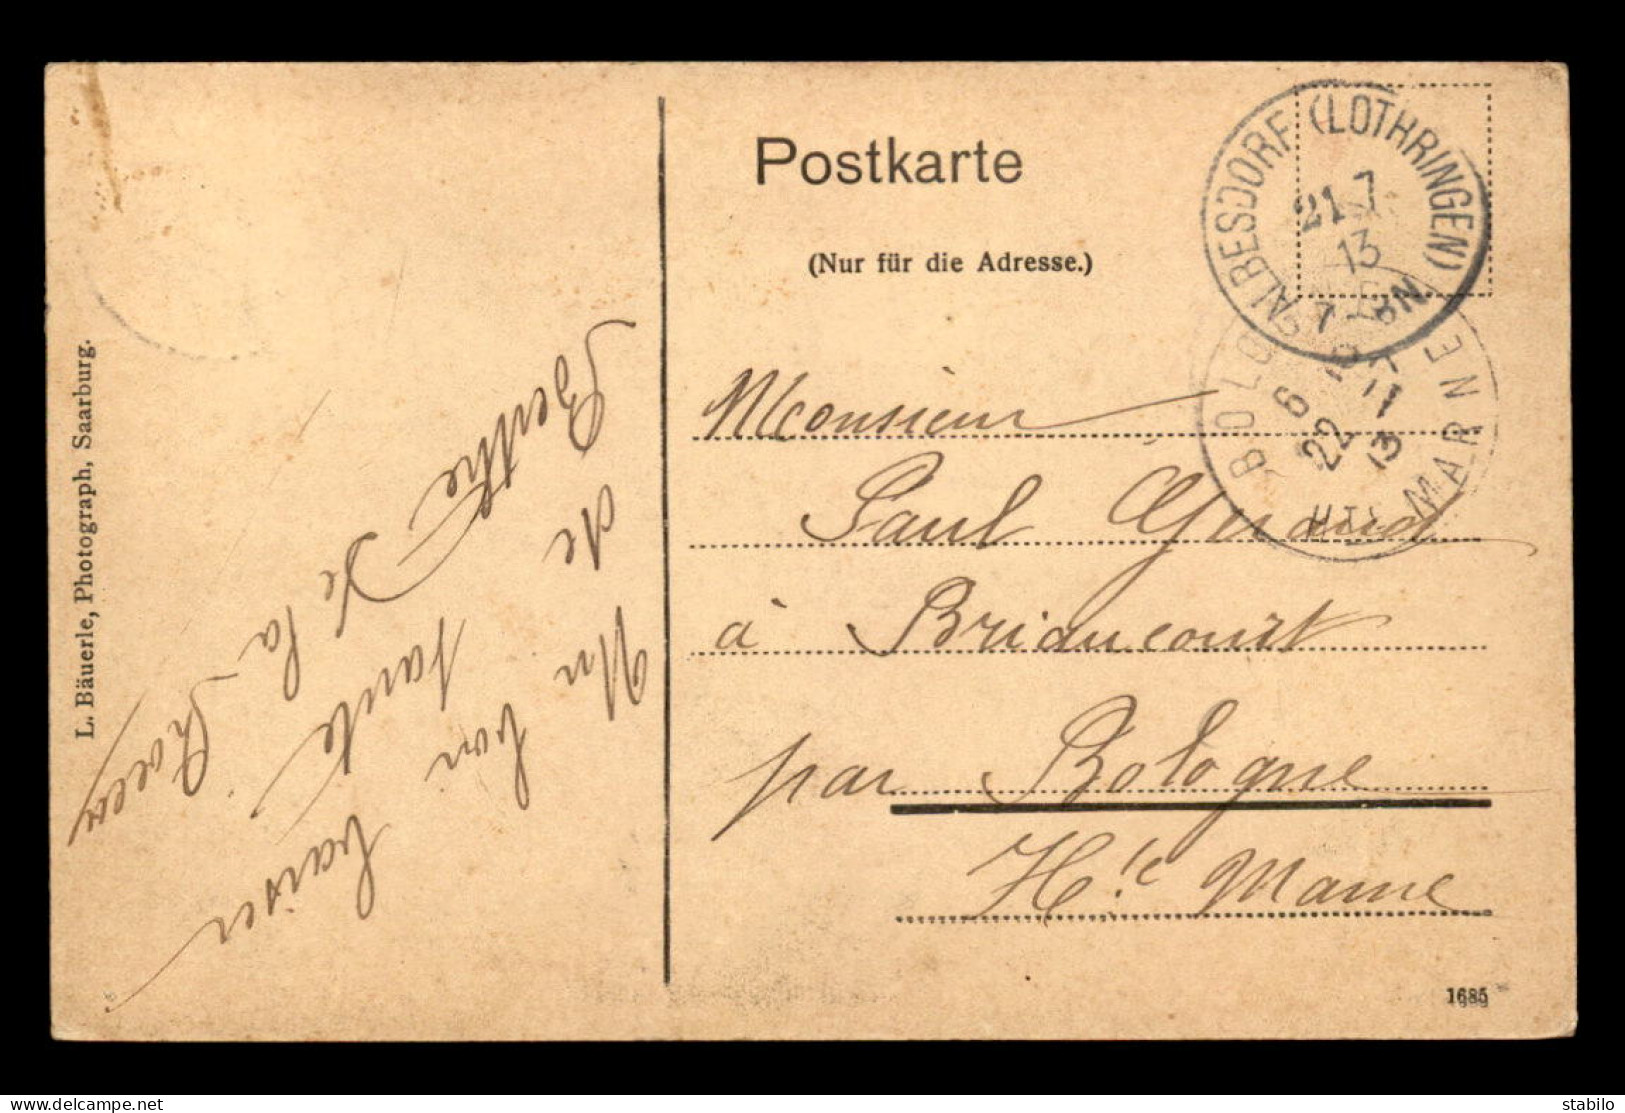 Postkarte
(Nur für die Adresse.)
ALBESDORF (LOTHRINGEN)
21.7
13
7-8N
BOLOGNE HTE MARNE
22
13
Monsieur
Paul Giraud
à Briaucourt
par Bologne
Hte Marne
Un bon baiser
de tante
Berthe De la
L. Bäuerle, Photograph, Saarburg.
1685
delcampe.net
stabilo